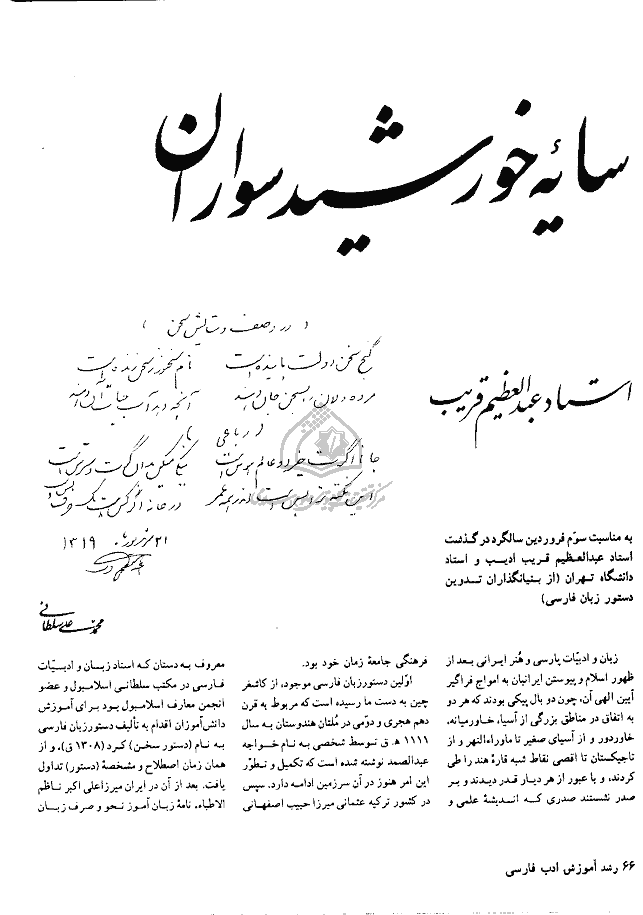 سایهٔ خورشید سواران
استاد عبدالعظیم قریب
( در وصف و ستایش سخن )
گنج سخن دولت پاینده است
نام سخنور ز سخن زنده است
مرده دلان را بسخن جان دهند
آنچه در آب حیات آن دهند
رباعی
۲۱ شهریور ۱۳۱۹
محمدعلی سلطانی
به مناسبت سوّم فروردین سالگرد درگذشت
استاد عبدالعظیم قریب ادیب و استاد
دانشگاه تهران (از بنیانگذاران تدوین
دستور زبان فارسی)
زبان و ادبیّات پارسی و هُنر ایرانی بعد از
ظهور اسلام و پیوستن ایرانیان به امواج فراگیر
آیین الهی آن، چون دو بال پیکی بودند که هر دو
به اتفاق در مناطق بزرگی از آسیا، خاورمیانه،
خاوردور و از آسیای صغیر تا ماوراءالنهر و از
تاجیکستان تا اقصی نقاط شبه قارهٔ هند را طی
کردند، و با عبور از هر دیار قدر دیدند و بر
صدر نشستند صدری که اندیشهٔ علمی و
فرهنگی جامعهٔ زمان خود بود.
اوّلین دستورزبان فارسی موجود، از کاشغر
چین به دست ما رسیده است که مربوط به قرن
دهم هجری و دوّمی در مُلتان هندوستان به سال
۱۱۱۱ ه‍. ق توسط شخصی به نام خواجه
عبدالصمد نوشته شده است که تکمیل و تطوّر
این امر هنوز در آن سرزمین ادامه دارد. سپس
در کشور ترکیه عثمانی میرزا حبیب اصفهانی
معروف به دستان که استاد زبان و ادبیّات
فارسی در مکتب سلطانی اسلامبول و عضو
انجمن معارف اسلامبول بود برای آموزش
دانش‌آموزان اقدام به تألیف دستورزبان فارسی
به نام (دستور سخن) کرد (۱۳۰۸ ق)، و از
همان زمان اصطلاح و مشخصهٔ (دستور) تداول
یافت. بعد از آن در ایران میرزاعلی اکبر ناظم
الاطباء، نامهٔ زبان آموز نحو و صرف زبان
۶۶ رشد آموزش ادب فارسی